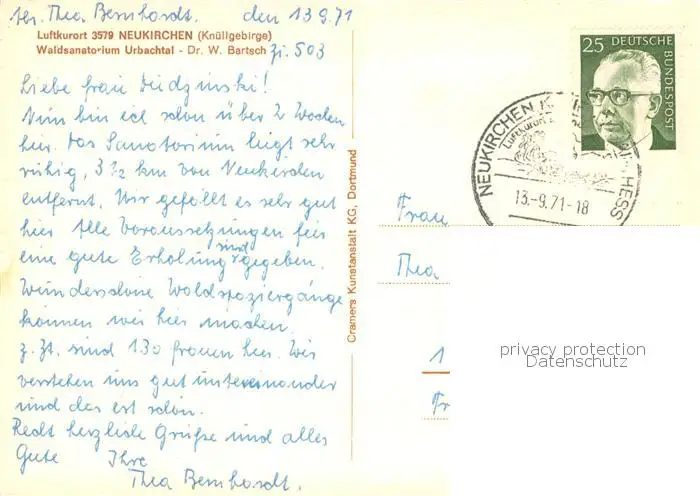 Thea Bernhardt. den 13.9.71
Luftkurort 3579 NEUKIRCHEN (Knüllgebirge)
Waldsanatorium Urbachtal - Dr. W. Bartsch
Zi. 503
Liebe Frau Dudzinski!
Nun bin ich schon über 2 Wochen
hier. Das Sanatorium liegt sehr
ruhig, 3 1/2 km von Neukirchen
entfernt. Mir gefällt es sehr gut
hier Alle Voraussetzungen für
eine gute Erholung sind gegeben.
Wunderschöne Waldspaziergänge
können wir hier machen.
z. Zt. sind 130 Frauen hier. Wir
verstehen uns gut untereinander
und das ist schön.
Recht herzliche Grüße und alles
Gute Ihre
Thea Bernhardt.
Cramers Kunstanstalt KG, Dortmund
25 DEUTSCHE BUNDESPOST
NEUKIRCHEN K. HESS
Luftkurort
13.-9.71-18
Frau
Thea
1
Fr
privacy protection
Datenschutz